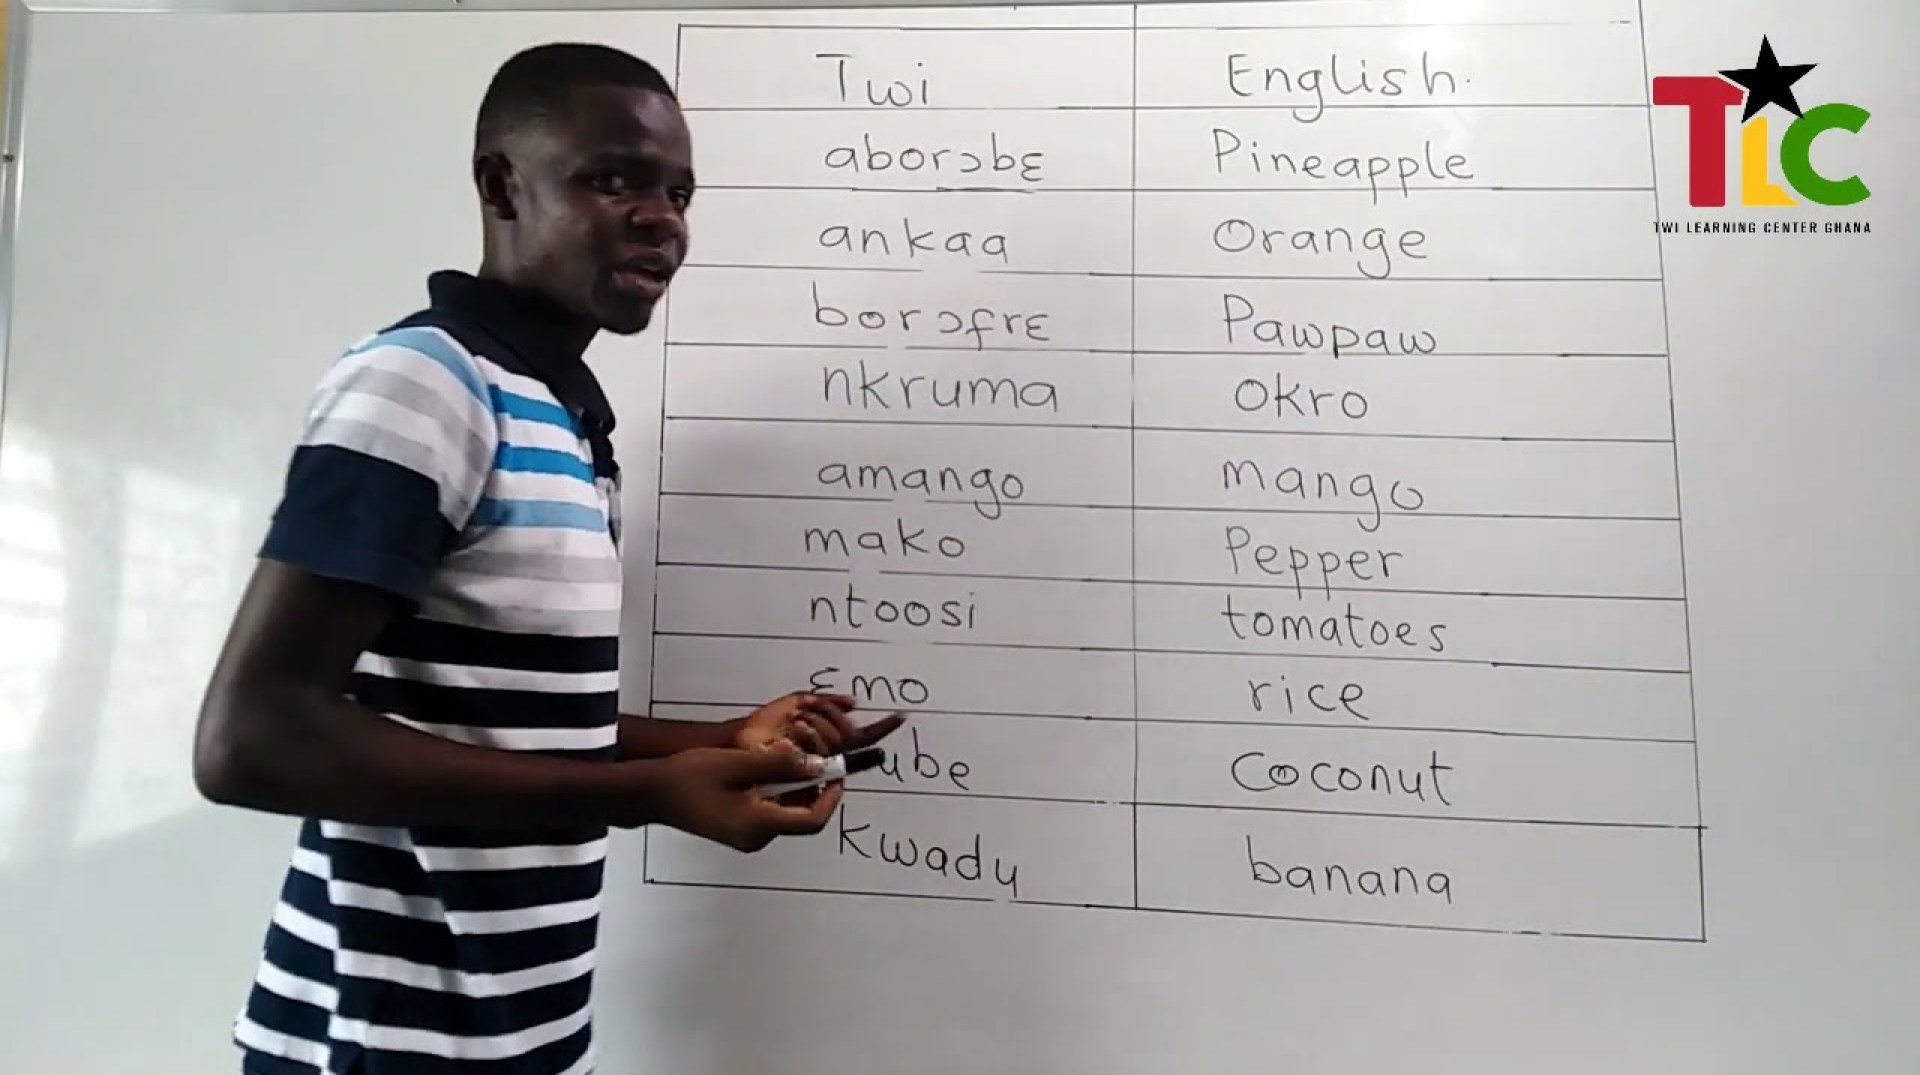 Twi English.
aborɔbɛ Pineapple
ankaa Orange
borɔfrɛ Pawpaw
nkruma Okro
amango mango
mako Pepper
ntoosi tomatoes
ɛmo rice
Coconut
kwadu banana
TLC
TWI LEARNING CENTER GHANA